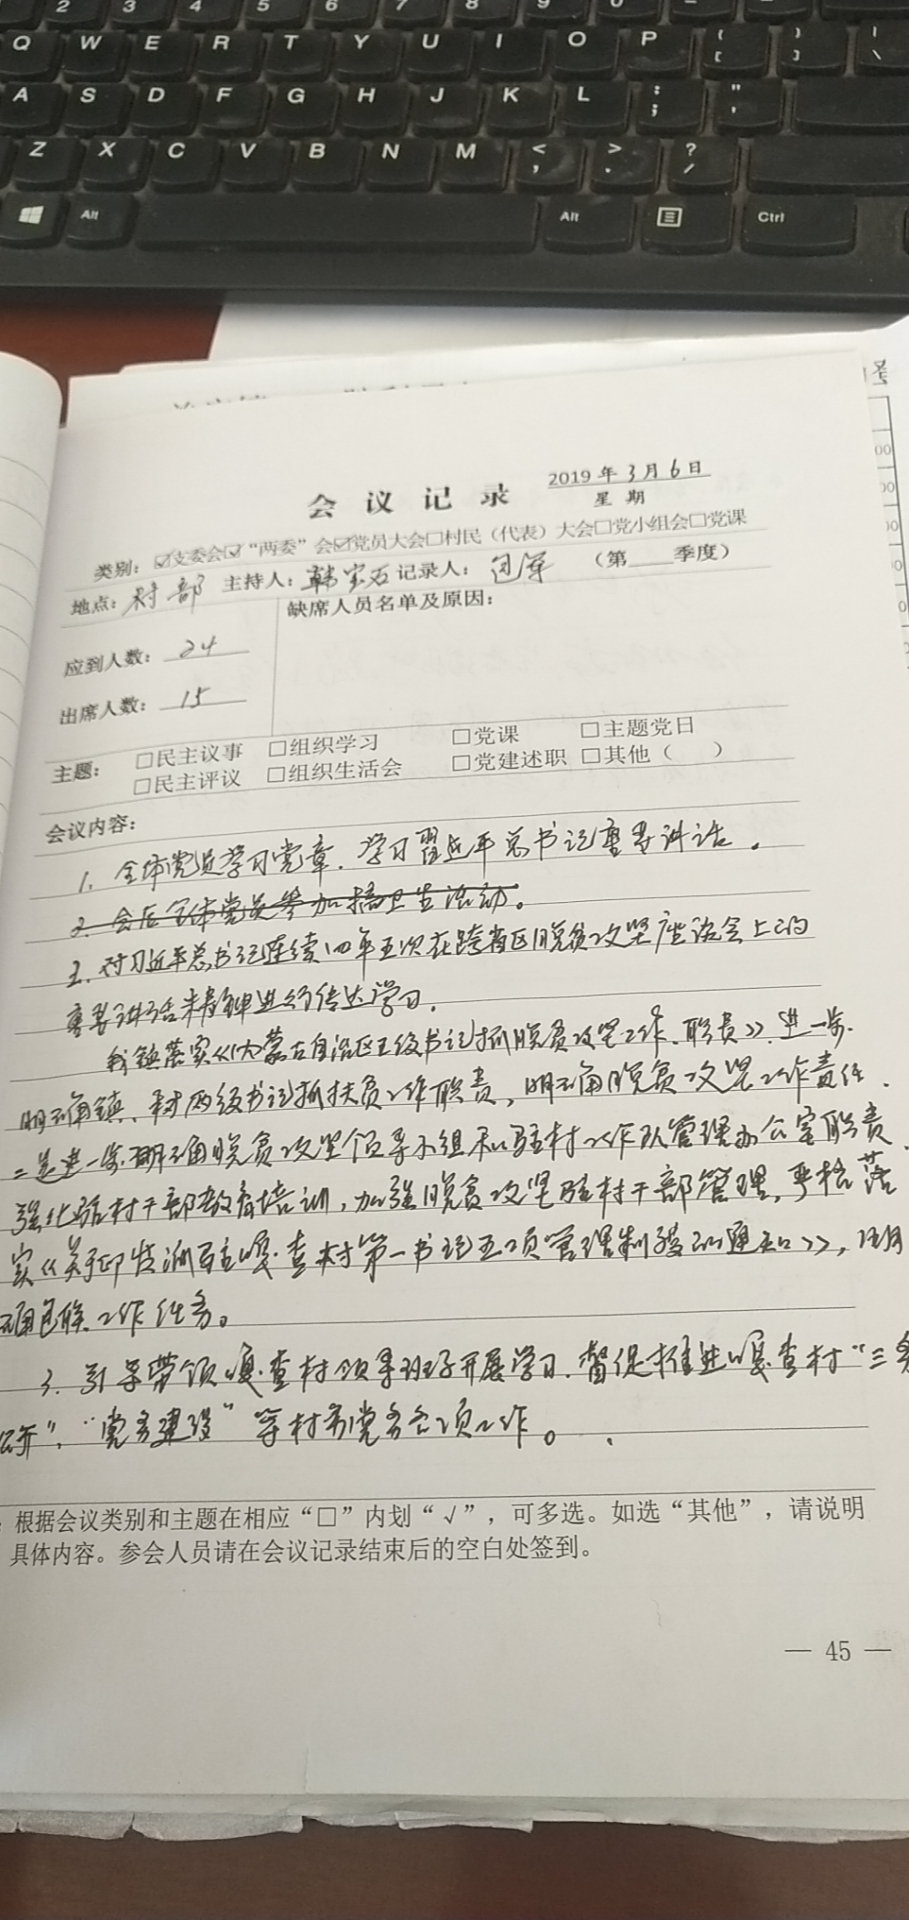 2 3 4 5 6 7 8 9 0
Q W E R T Y U I O P { [ } ] | \
A S D F G H J K L : ; " '
Z X C V B N M < , > . ? /
Alt Alt Ctrl
会议记录 2019年3月6日
星期
类别：☑支委会☑“两委”会☑党员大会□村民（代表）大会□党小组会□党课
地点：村部 主持人：韩宝石 记录人： （第 季度）
缺席人员名单及原因：
应到人数：24
出席人数：15
主题： □民主议事 □组织学习 □党课 □主题党日
□民主评议 □组织生活会 □党建述职 □其他（ ）
会议内容：
1. 全体党员学习党章．学习习近平总书记重要讲话。
2. 会后全体党员参加搞卫生活动。
2. 对习近平总书记连续四年五次在跨省区脱贫攻坚座谈会上的
重要讲话精神进行传达学习．
我镇落实《内蒙古自治区五级书记抓脱贫攻坚工作职责》进一步
明确镇、村两级书记抓扶贫工作职责，明确脱贫攻坚工作责任．
二是进一步明确脱贫攻坚领导小组和驻村工作队管理办公室职责
强化驻村干部教育培训，加强脱贫攻坚驻村干部管理，严格落
实《关于印发 嘎查村第一书记五项管理制度的通知》，明
确包联工作任务。
3. 引导带领嘎查村领导班子开展学习．督促推进嘎查村“三务
公开”，“党务建设”等村务党务各项工作。
根据会议类别和主题在相应“□”内划“√”，可多选。如选“其他”，请说明
具体内容。参会人员请在会议记录结束后的空白处签到。
— 45 —